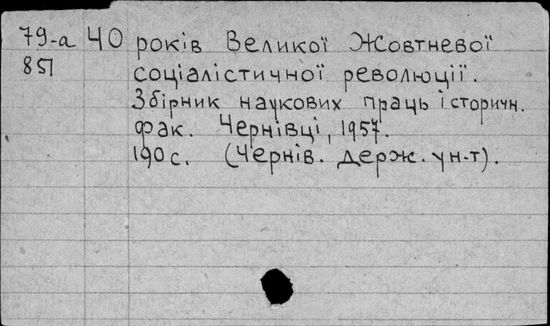 79-а 40 років Великої Жовтневої
851 соціалістичної революції.
Збірник наукових праць історичн.
фак. Чернівці, 1957.
190 с. (Чернів. держ. ун-т).